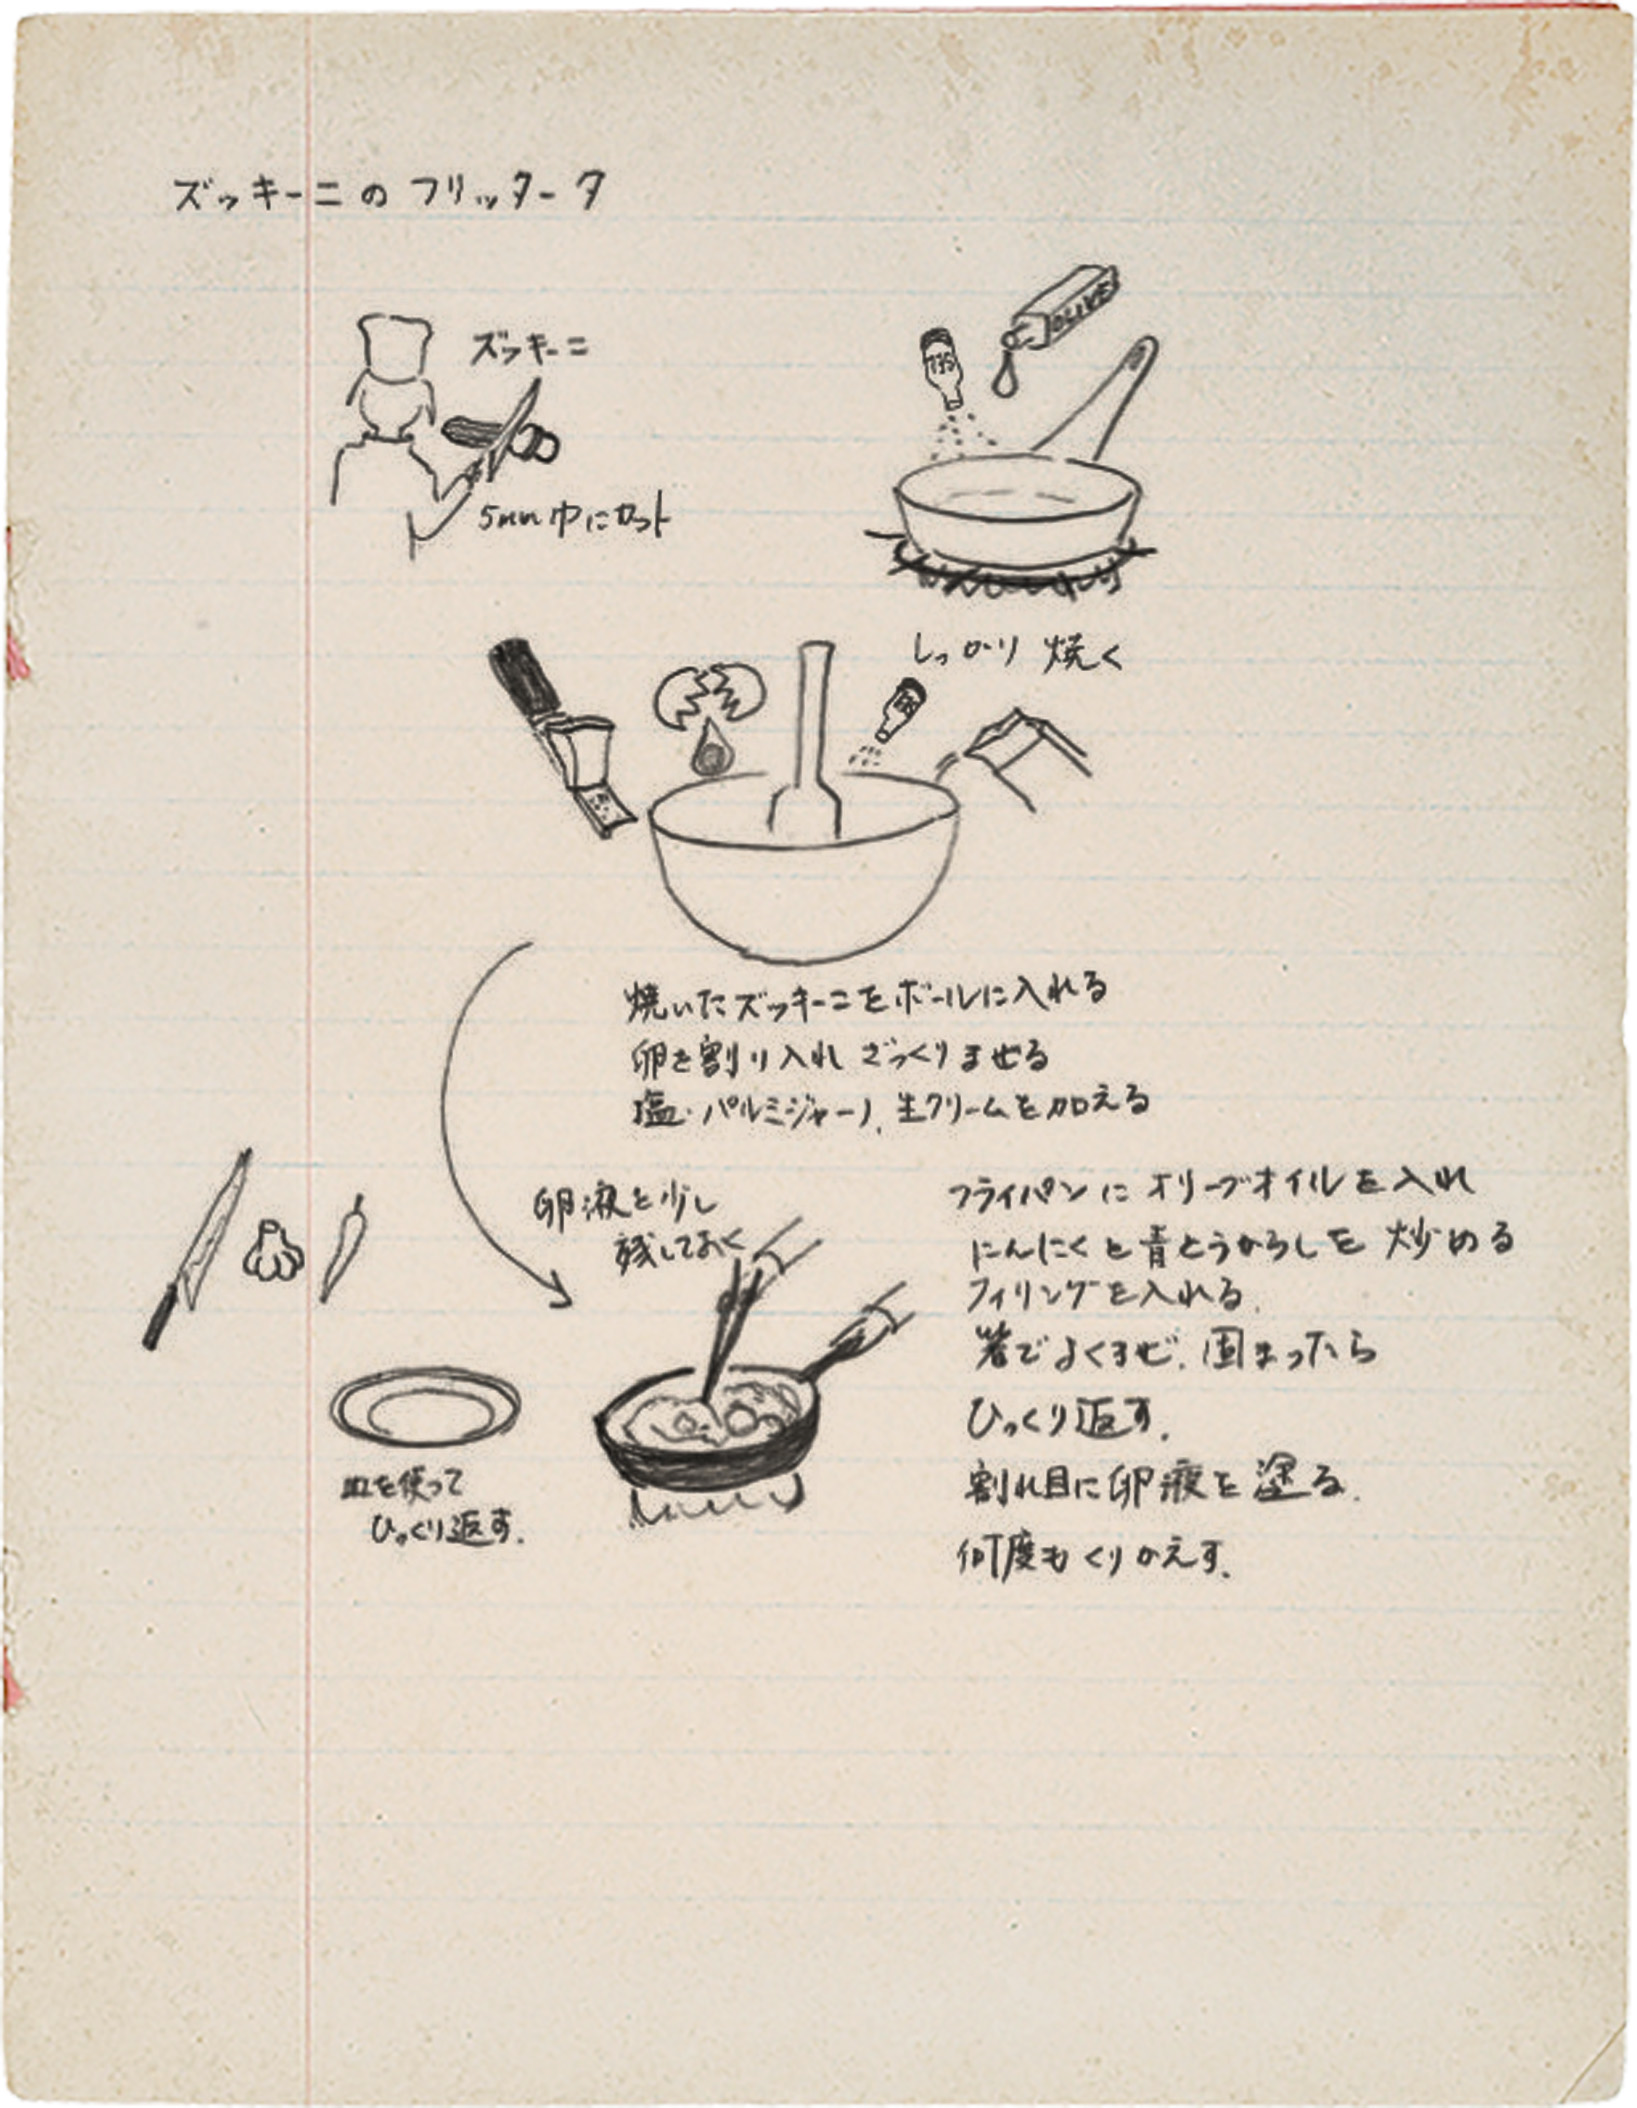 ズッキーニのフリッタータ
ズッキーニ
5mm巾にカット
OLIVE
SEL
しっかり焼く
焼いたズッキーニをボールに入れる
卵を割り入れざっくりませる
塩・パルミジャーノ、生クリームを加える
卵液を少し
残しておく
フライパンにオリーブオイルを入れ
にんにくと青とうがらしを炒める
フィリングを入れる.
箸でよくまぜ、固まったら
ひっくり返す.
割れ目に卵液を塗る.
何度もくりかえす.
皿を使って
ひっくり返す.